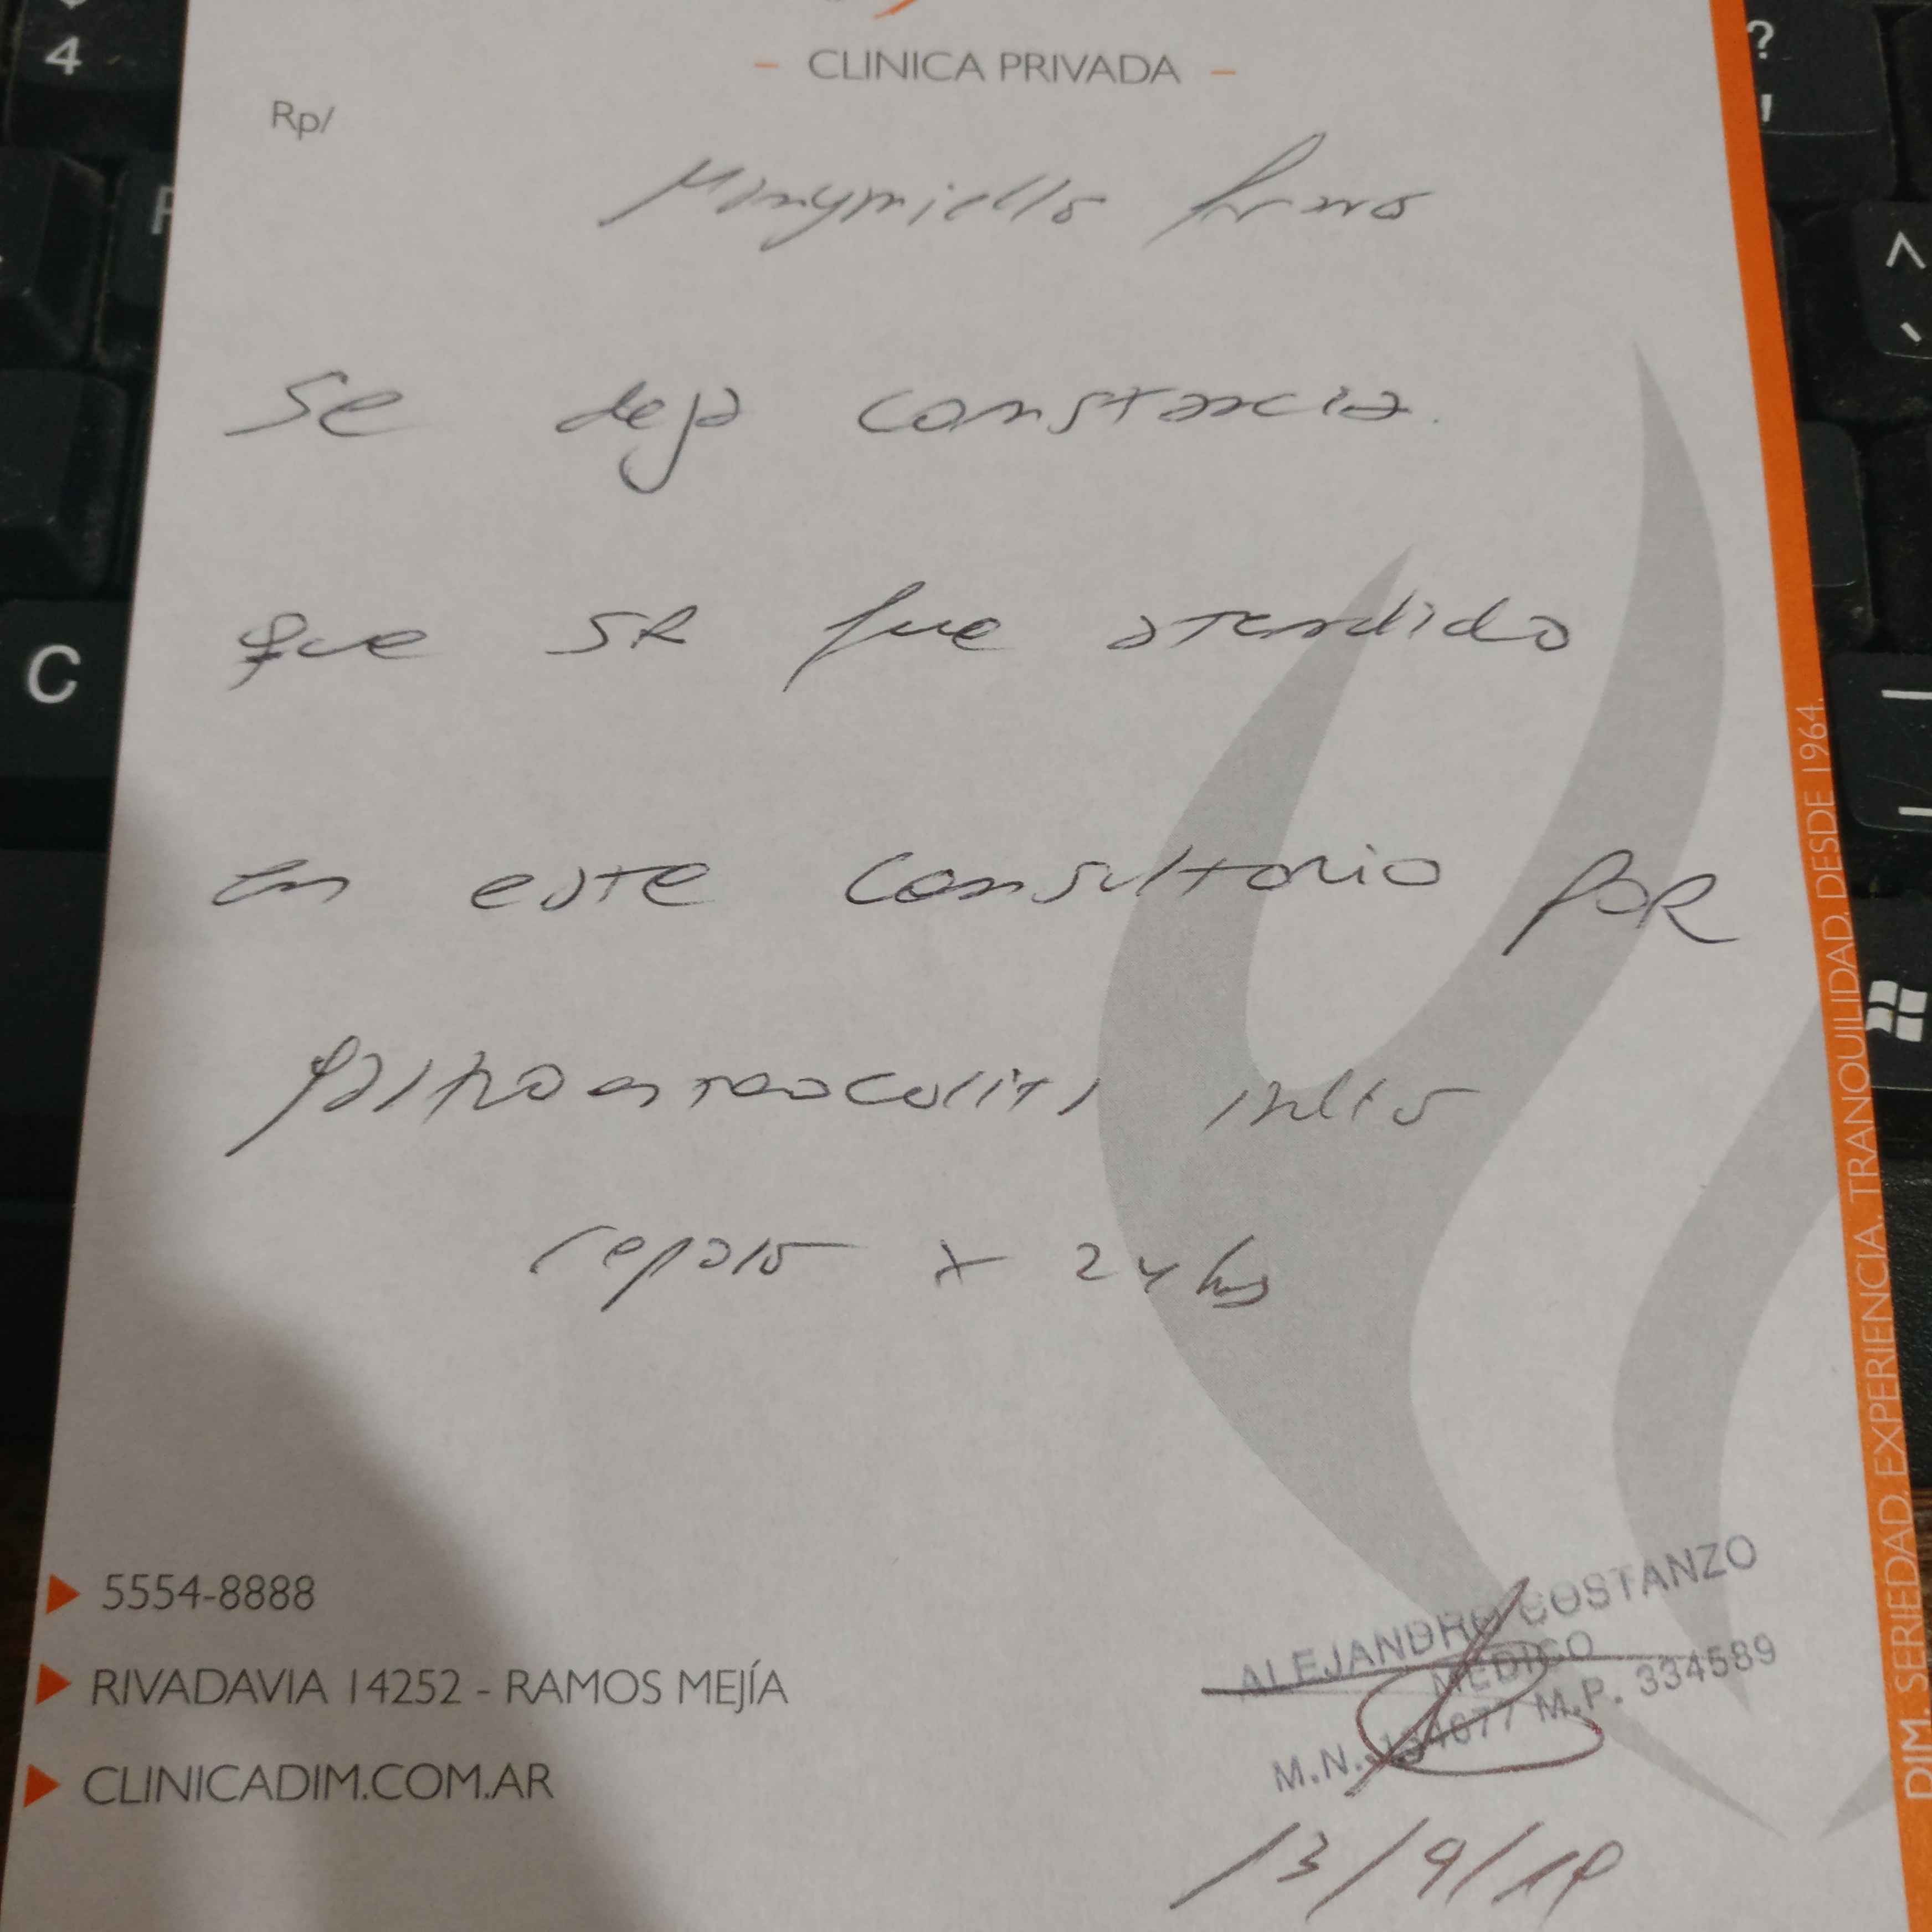 - CLINICA PRIVADA -
Rp/
se deja constancia.
que SR fue atendido
en este consultorio POR
gastroenterocolitis
reposo x 24 hs
5554-8888
RIVADAVIA 14252 - RAMOS MEJÍA
CLINICADIM.COM.AR
ALEJANDRO COSTANZO
MEDICO
M.N. M.P. 334589
13/9/19
DIM. SERIEDAD. EXPERIENCIA. TRANQUILIDAD. DESDE 1964.
4
?
!
C